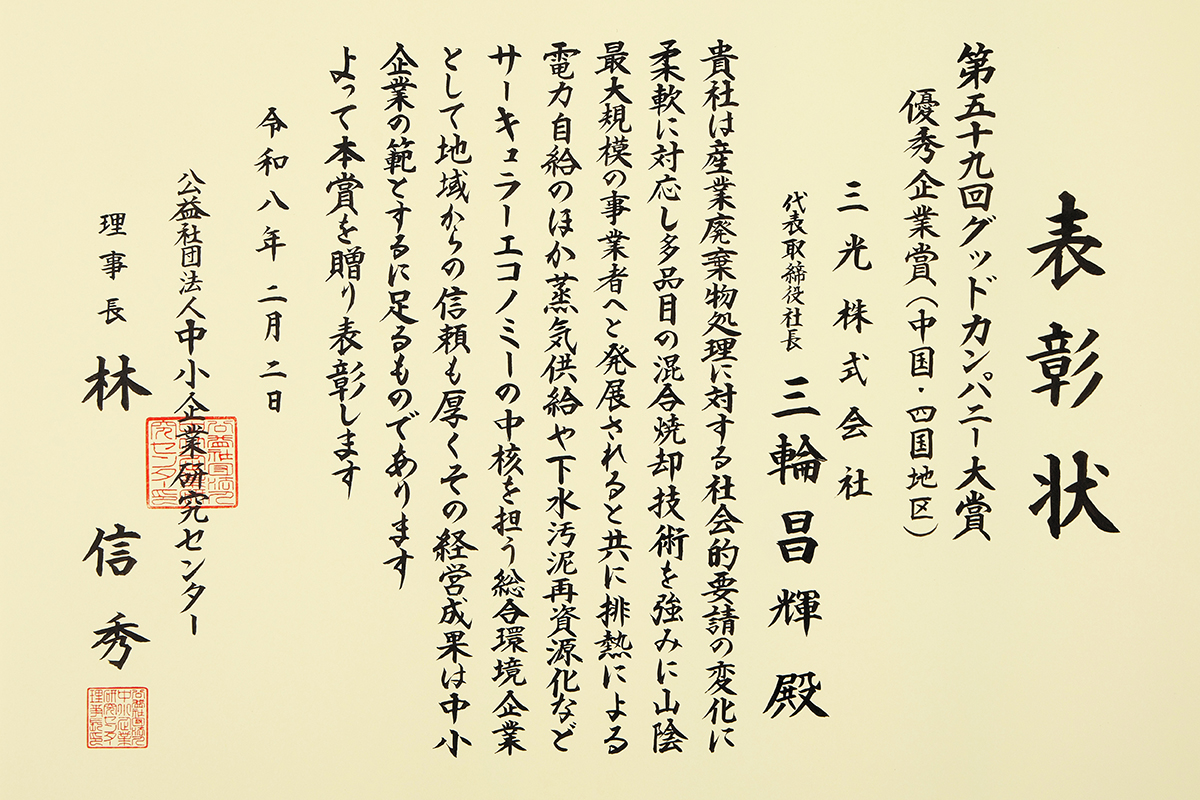 表彰状
第五十九回グッドカンパニー大賞
優秀企業賞（中国・四国地区）
三光株式会社
代表取締役社長 三輪昌輝殿
貴社は産業廃棄物処理に対する社会的要請の変化に
柔軟に対応し多品目の混合焼却技術を強みに山陰
最大規模の事業者へと発展されると共に排熱による
電力自給のほか蒸気供給や下水汚泥再資源化など
サーキュラーエコノミーの中核を担う総合環境企業
として地域からの信頼も厚くその経営成果は中小
企業の範とするに足るものであります
よって本賞を贈り表彰します
令和八年二月二日
公益社団法人中小企業研究センター
理事長 林信秀